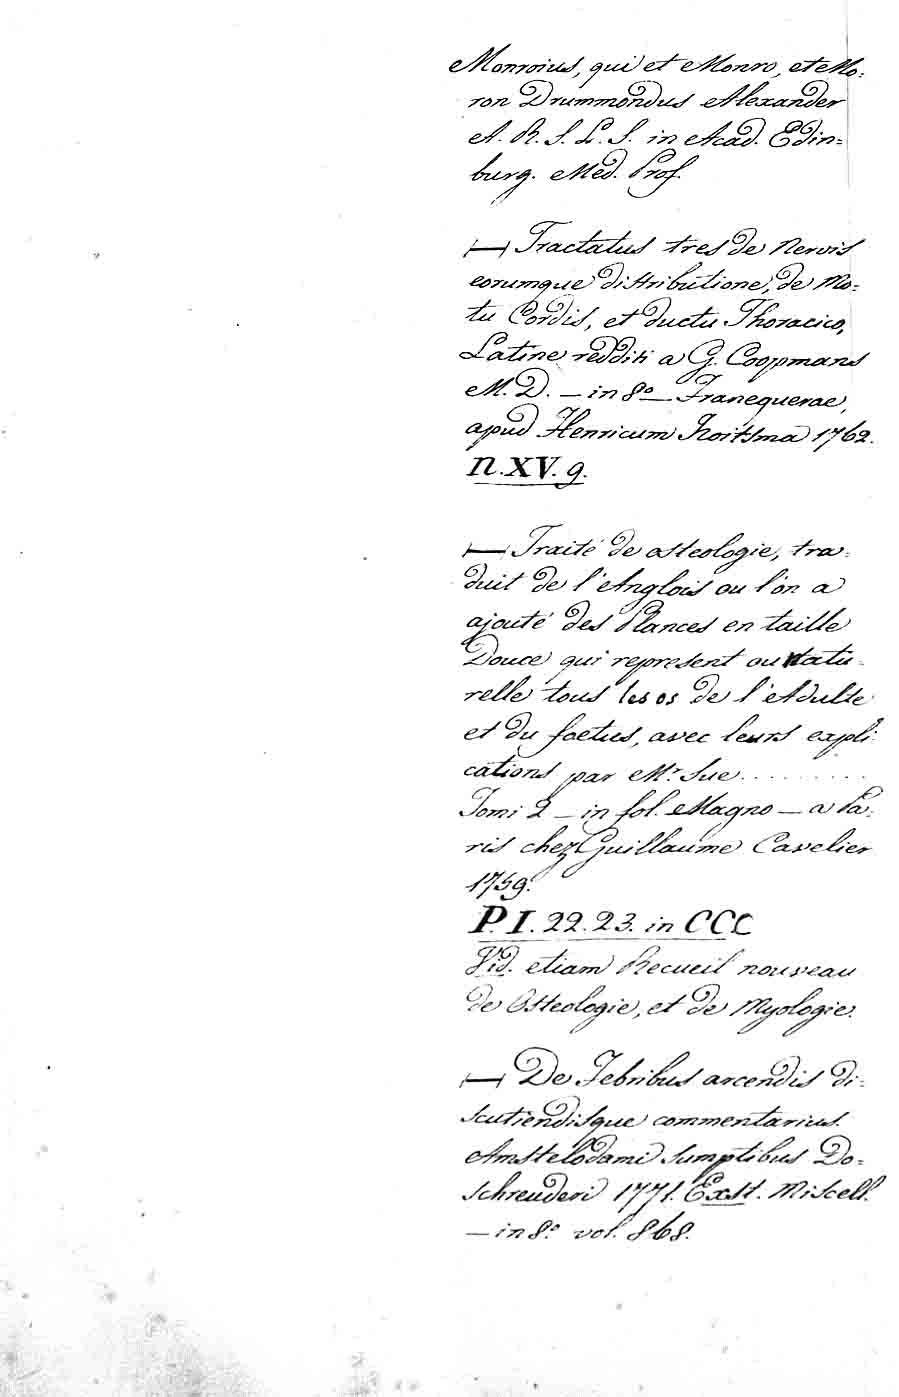 Monroius, qui et Monro, et Mo=
ron Drummondus Alexander
A. R. S. L. S. in Acad. Edin=
burg. Med. Prof.
— Tractatus tres de Nervis
eorumque distributione, de Mo=
tu Cordis, et ductu Thoracico,
Latine redditi a G. Coopmans
M. D. — in 8º — Franequerae,
apud Henricum 1762.
N. XV. 9.
— Traité de osteologie, tra=
duit de l'Anglois ou l'on a
ajouté des Plances en taille
Douce qui represent au Natu=
relle tous les os de l'Adulte
et du foetus, avec leurs expli=
cations par Mr. Sue . . . . . . . . .
Tomi 2 — in fol. Magno — a Pa=
ris chez Guillaume Cavelier
1759.
P. I. 22. 23. in CCC
Vid. etiam Recueil nouveau
de Osteologie, et de Myologie.
— De Febribus arcendis di=
scutiendisque commentarius.
Amstelodami sumptibus Do=
schreuderi 1771. Exst. Miscell.
— in 8º vol. 868.